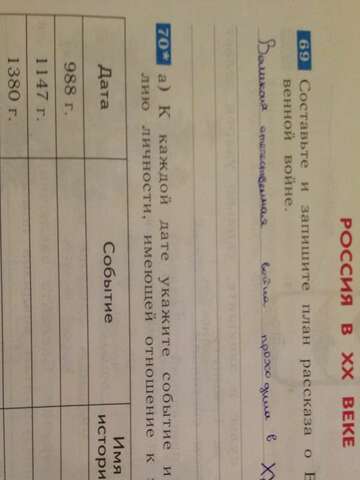 РОССИЯ В XX ВЕКЕ
69 Составьте и запишите план рассказа о
венной войне.
Великая отечественная война проходила в
70* а) К каждой дате укажите событие и
лию личности, имеющей отношение к
Дата Событие Имя
истори
988 г.
1147 г.
1380 г.